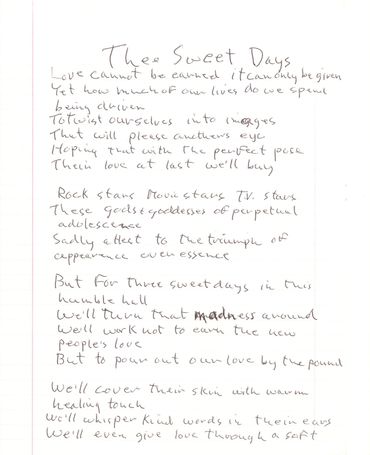 Three Sweet Days
Love cannot be earned it can only be given
Yet how much of our lives do we spend
being driven
To twist ourselves into images
That will please another's eye
Hoping that with the perfect pose
Their love at last we'll buy
Rock stars Movie stars TV. stars
These gods & goddesses of perpetual
adolescence
Sadly attest to the triumph of
appearance over essence
But For three sweet days in this
humble hall
We'll turn that madness around
We'll work not to earn the new
people's love
But to pour out our love by the pound
We'll cover their skin with warm
healing touch
We'll whisper kind words in their ears
We'll even give love through a soft